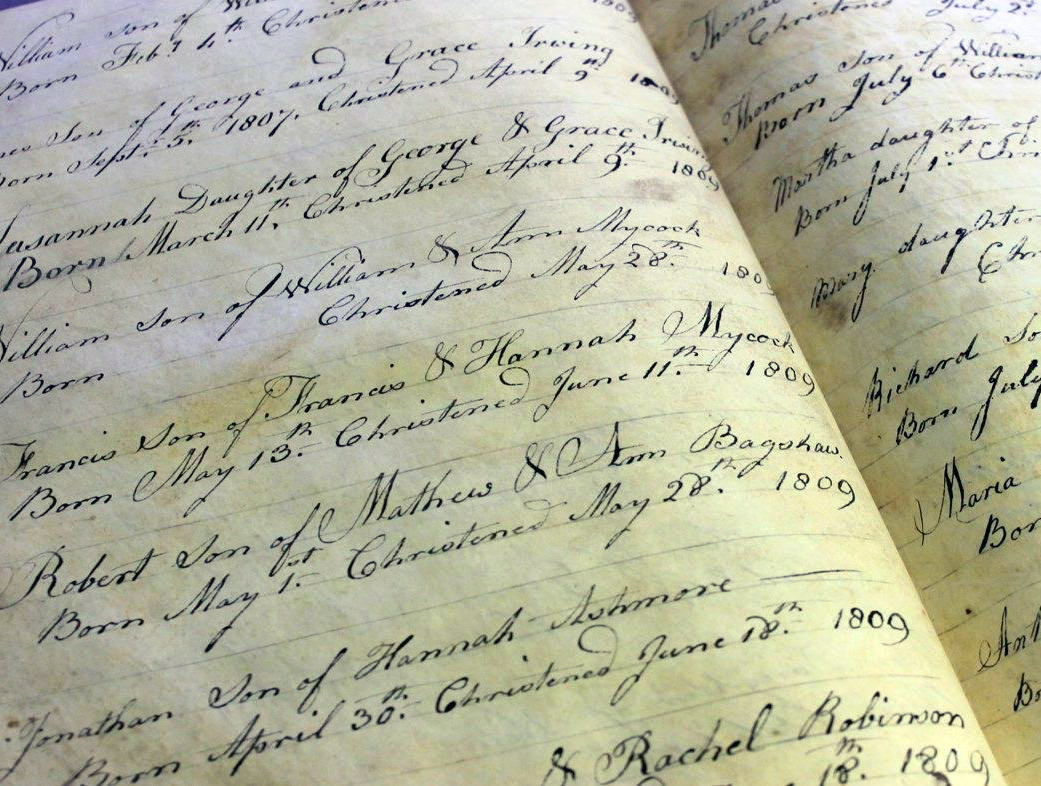 William son of William
Born Feb.y 4.th Christened 1809
Son of George and Grace Irwing
Born Sept.r 5.th 1807. Christened April 9.th 1809
Susannah Daughter of George & Grace Irwing
Born March 11.th Christened April 9.th 1809
William son of William & Ann Mycock
Born Christened May 28.th 180
Francis son of Francis & Hannah Mycock
Born May 13.th Christened June 11.th 1809
Robert son of Mathew & Ann Bagshaw.
Born May 1.st Christened May 28.th 1809
Jonathan Son of Hannah Ashmore
Born April 30.th Christened June 18.th 1809
& Rachel Robinson
18.th 1809
Thomas
Christened July 2.d
Thomas Son of William
Born July 6.th Christ
Martha daughter of
Born July 1.st Chri
Mary daughter
Chr
Richard So
Born July
Maria
Bor
Ant
Bo